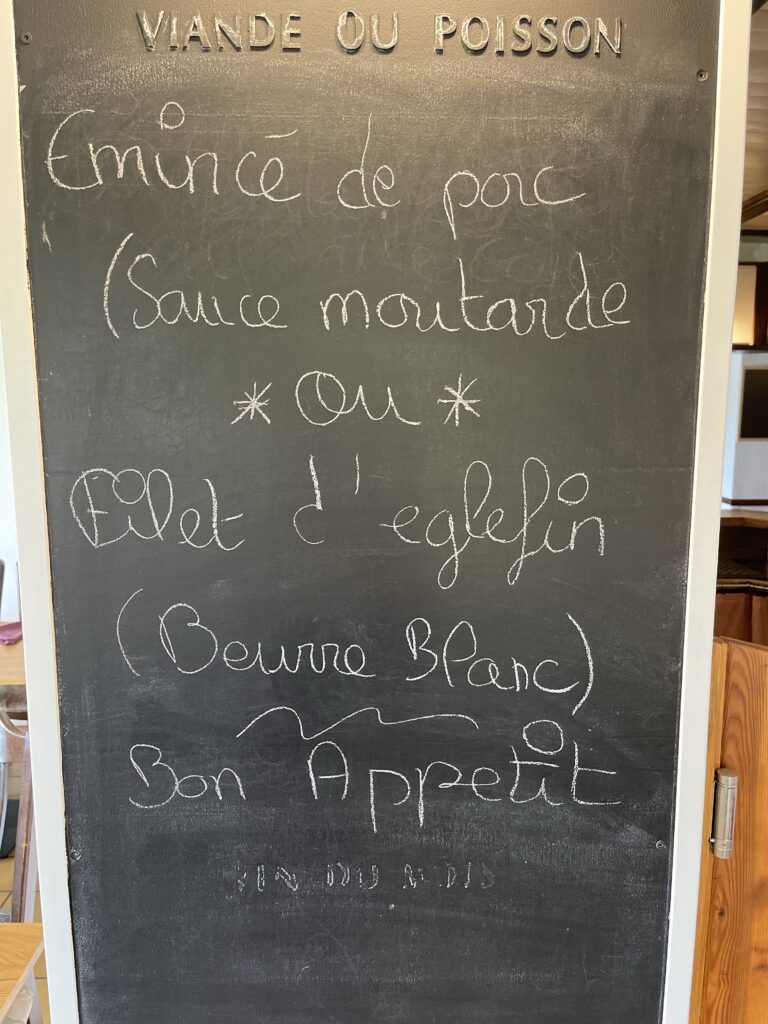 VIANDE OU POISSON
Emincé de porc
(Sauce moutarde
* Ou *
Filet d'eglefin
(Beurre Blanc)
Bon Appetit
VIN DU MOIS